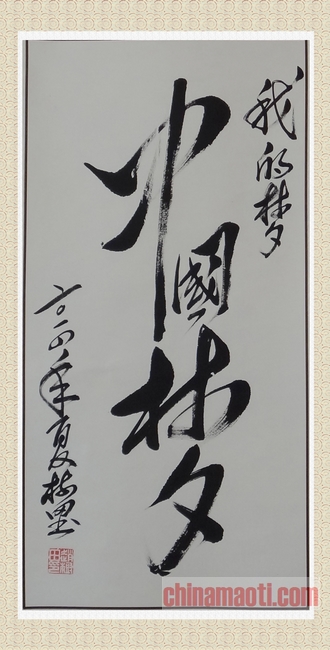 我的梦
中國梦
二〇一四年夏
chinamaoti.com